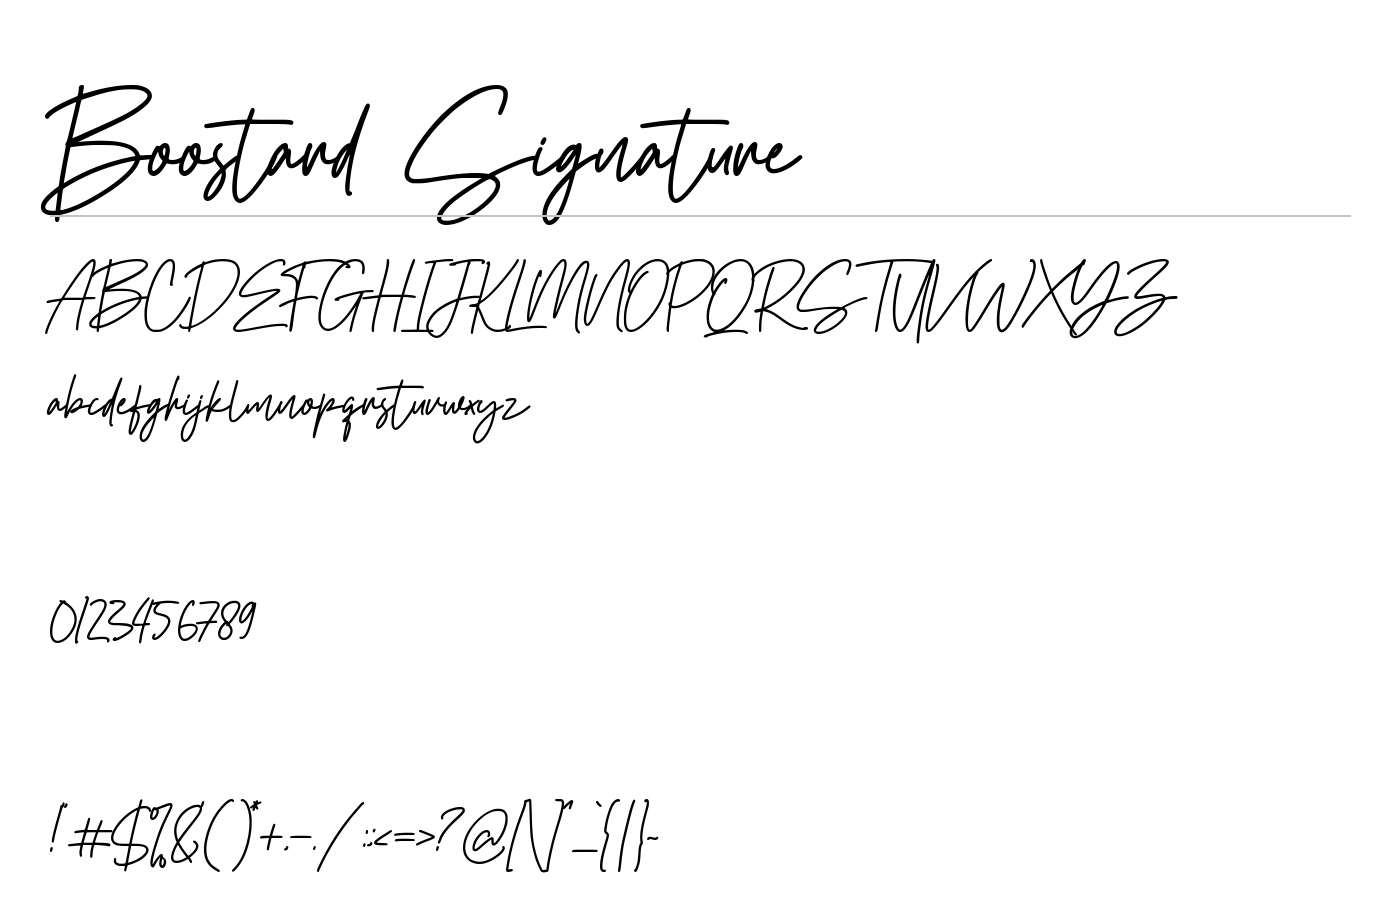 Boostand Signature
ABCDEFGHIJKLMNOPQRSTUVWXYZ
abcdefghijklmnopqrstuvwxyz
0123456789
!"#$%&'()*+,-./:;<=>?@[\]^_`{|}~